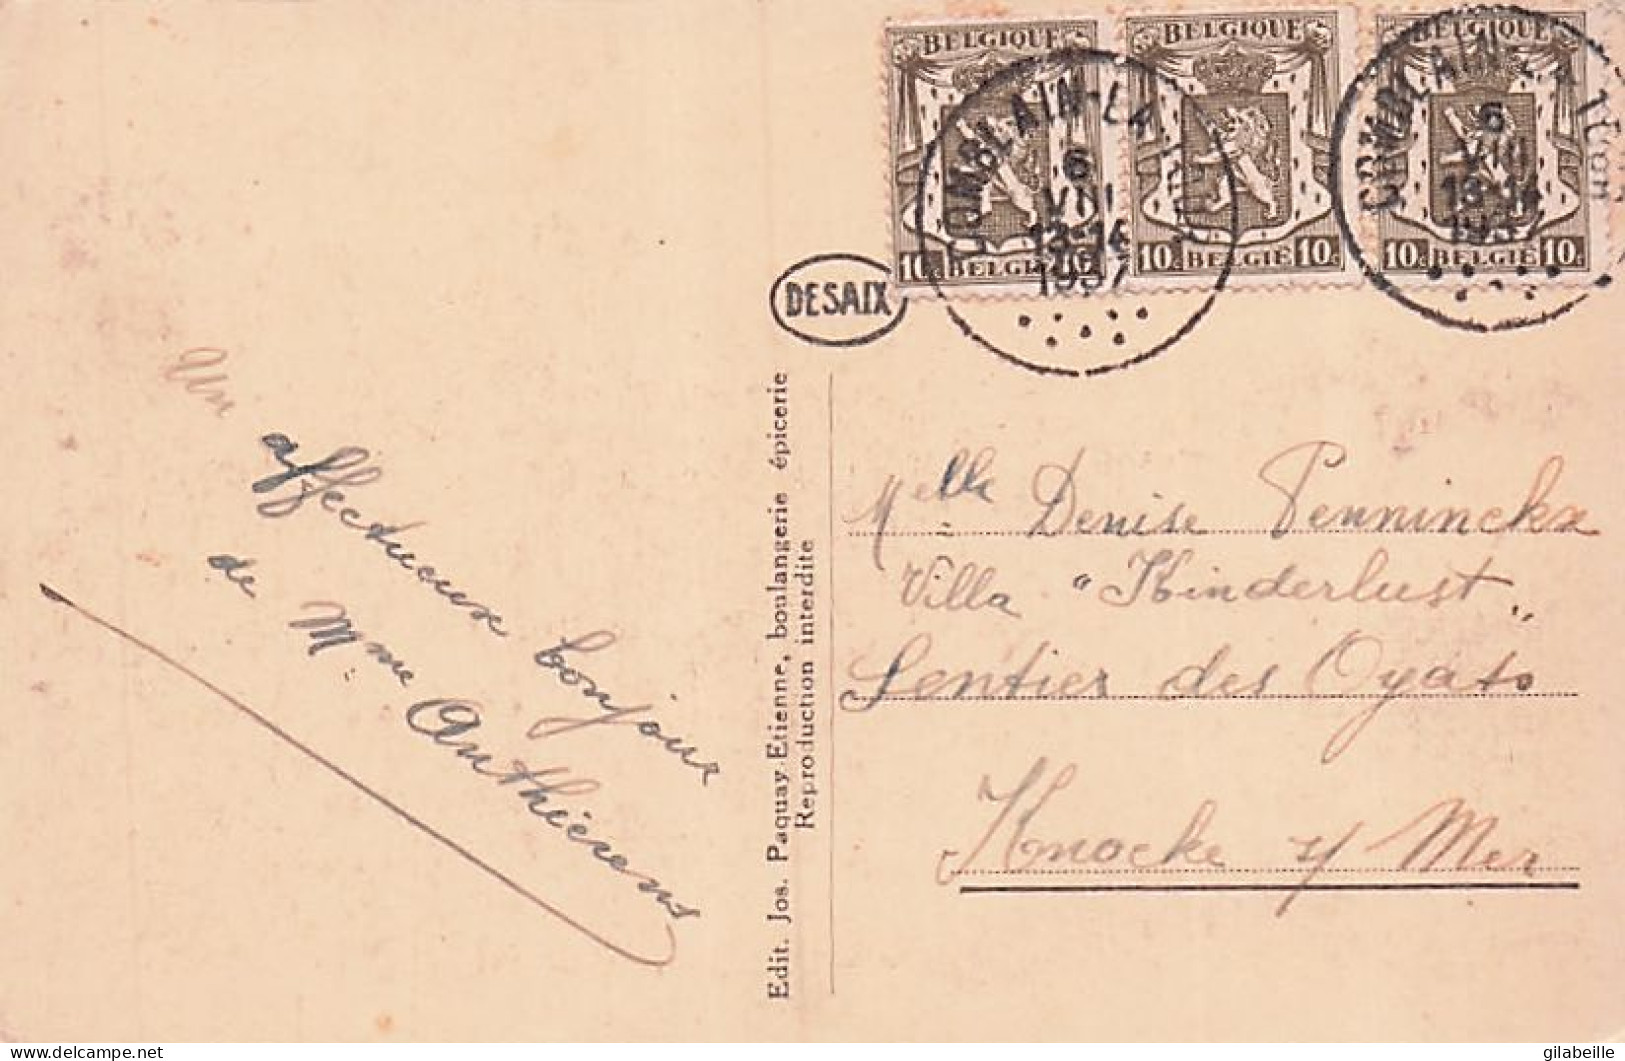 BELGIQUE
10c BELGIË 10c
BELGIQUE
10c BELGIË 10c
BELGIQUE
10c BELGIË 10c
COMBLAIN-LA
6
VIII
13-14
1937
COMBLAIN-LA
6
VIII
13-14
1937
DESAIX
Un
affectueux bonjour
de Mme Anthiérens
Edit. Jos. Paquay-Etienne, boulangerie épicerie
Reproduction interdite
Melle Denise Penninckx
Villa "Kinderlust"
Sentier des Oyats
Knocke s/ Mer
delcampe.net
gilabeille